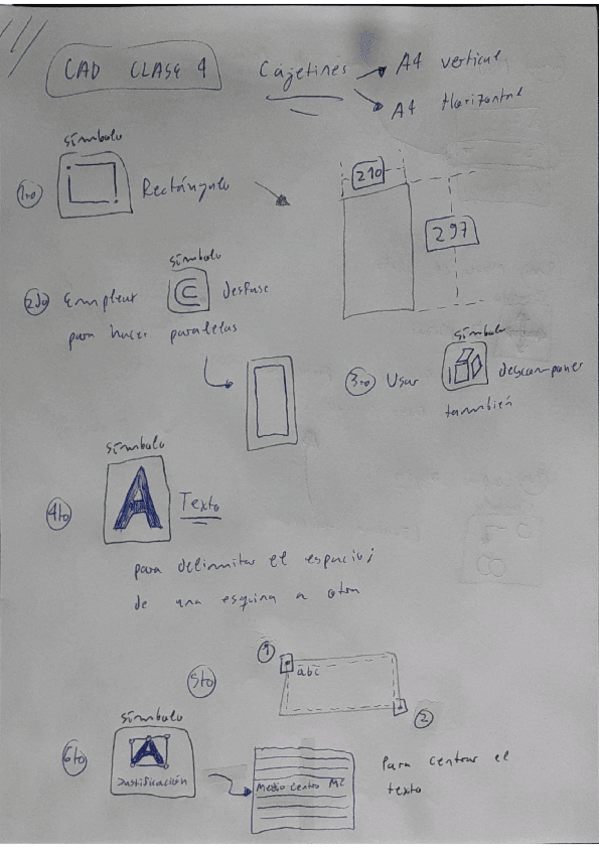 CAD CLASE 4
Cajetines
A4 vertical
A4 Horizontal
símbolo
1ro
Rectángulo
210
297
símbolo
2do Emplear desfase
para hacer paralelas
símbolo
3ro Usar descomponer
tambnién
símbolo
4to
A
Texto
para delimitar el espacio;
de una esquina a otra
5to
1
abc
2
símbolo
6to
A
Justificación
Medio Centro MC
Para centrar el
texto